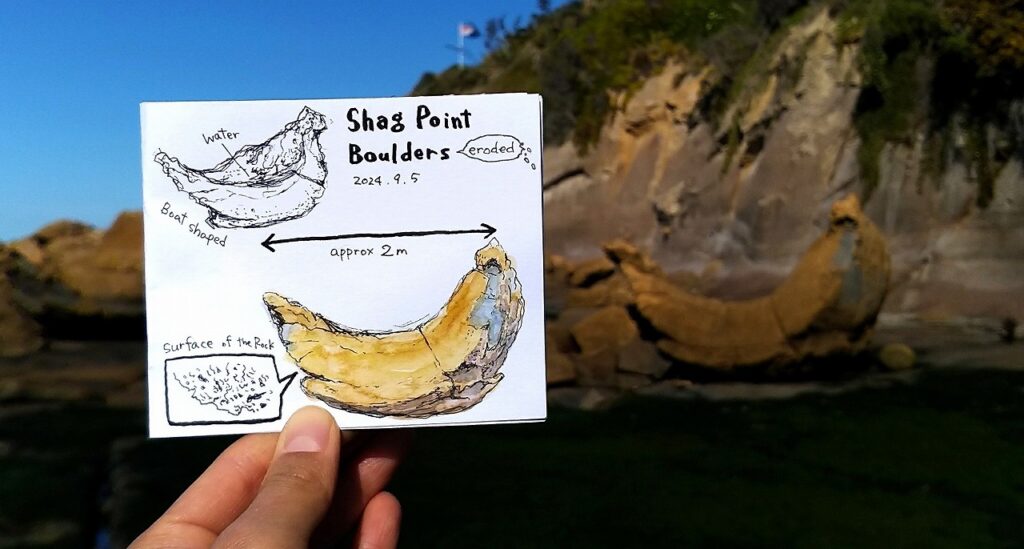 Shag Point
Boulders
eroded
2024.9.5
water
Boat shaped
approx 2m
Surface of the Rock